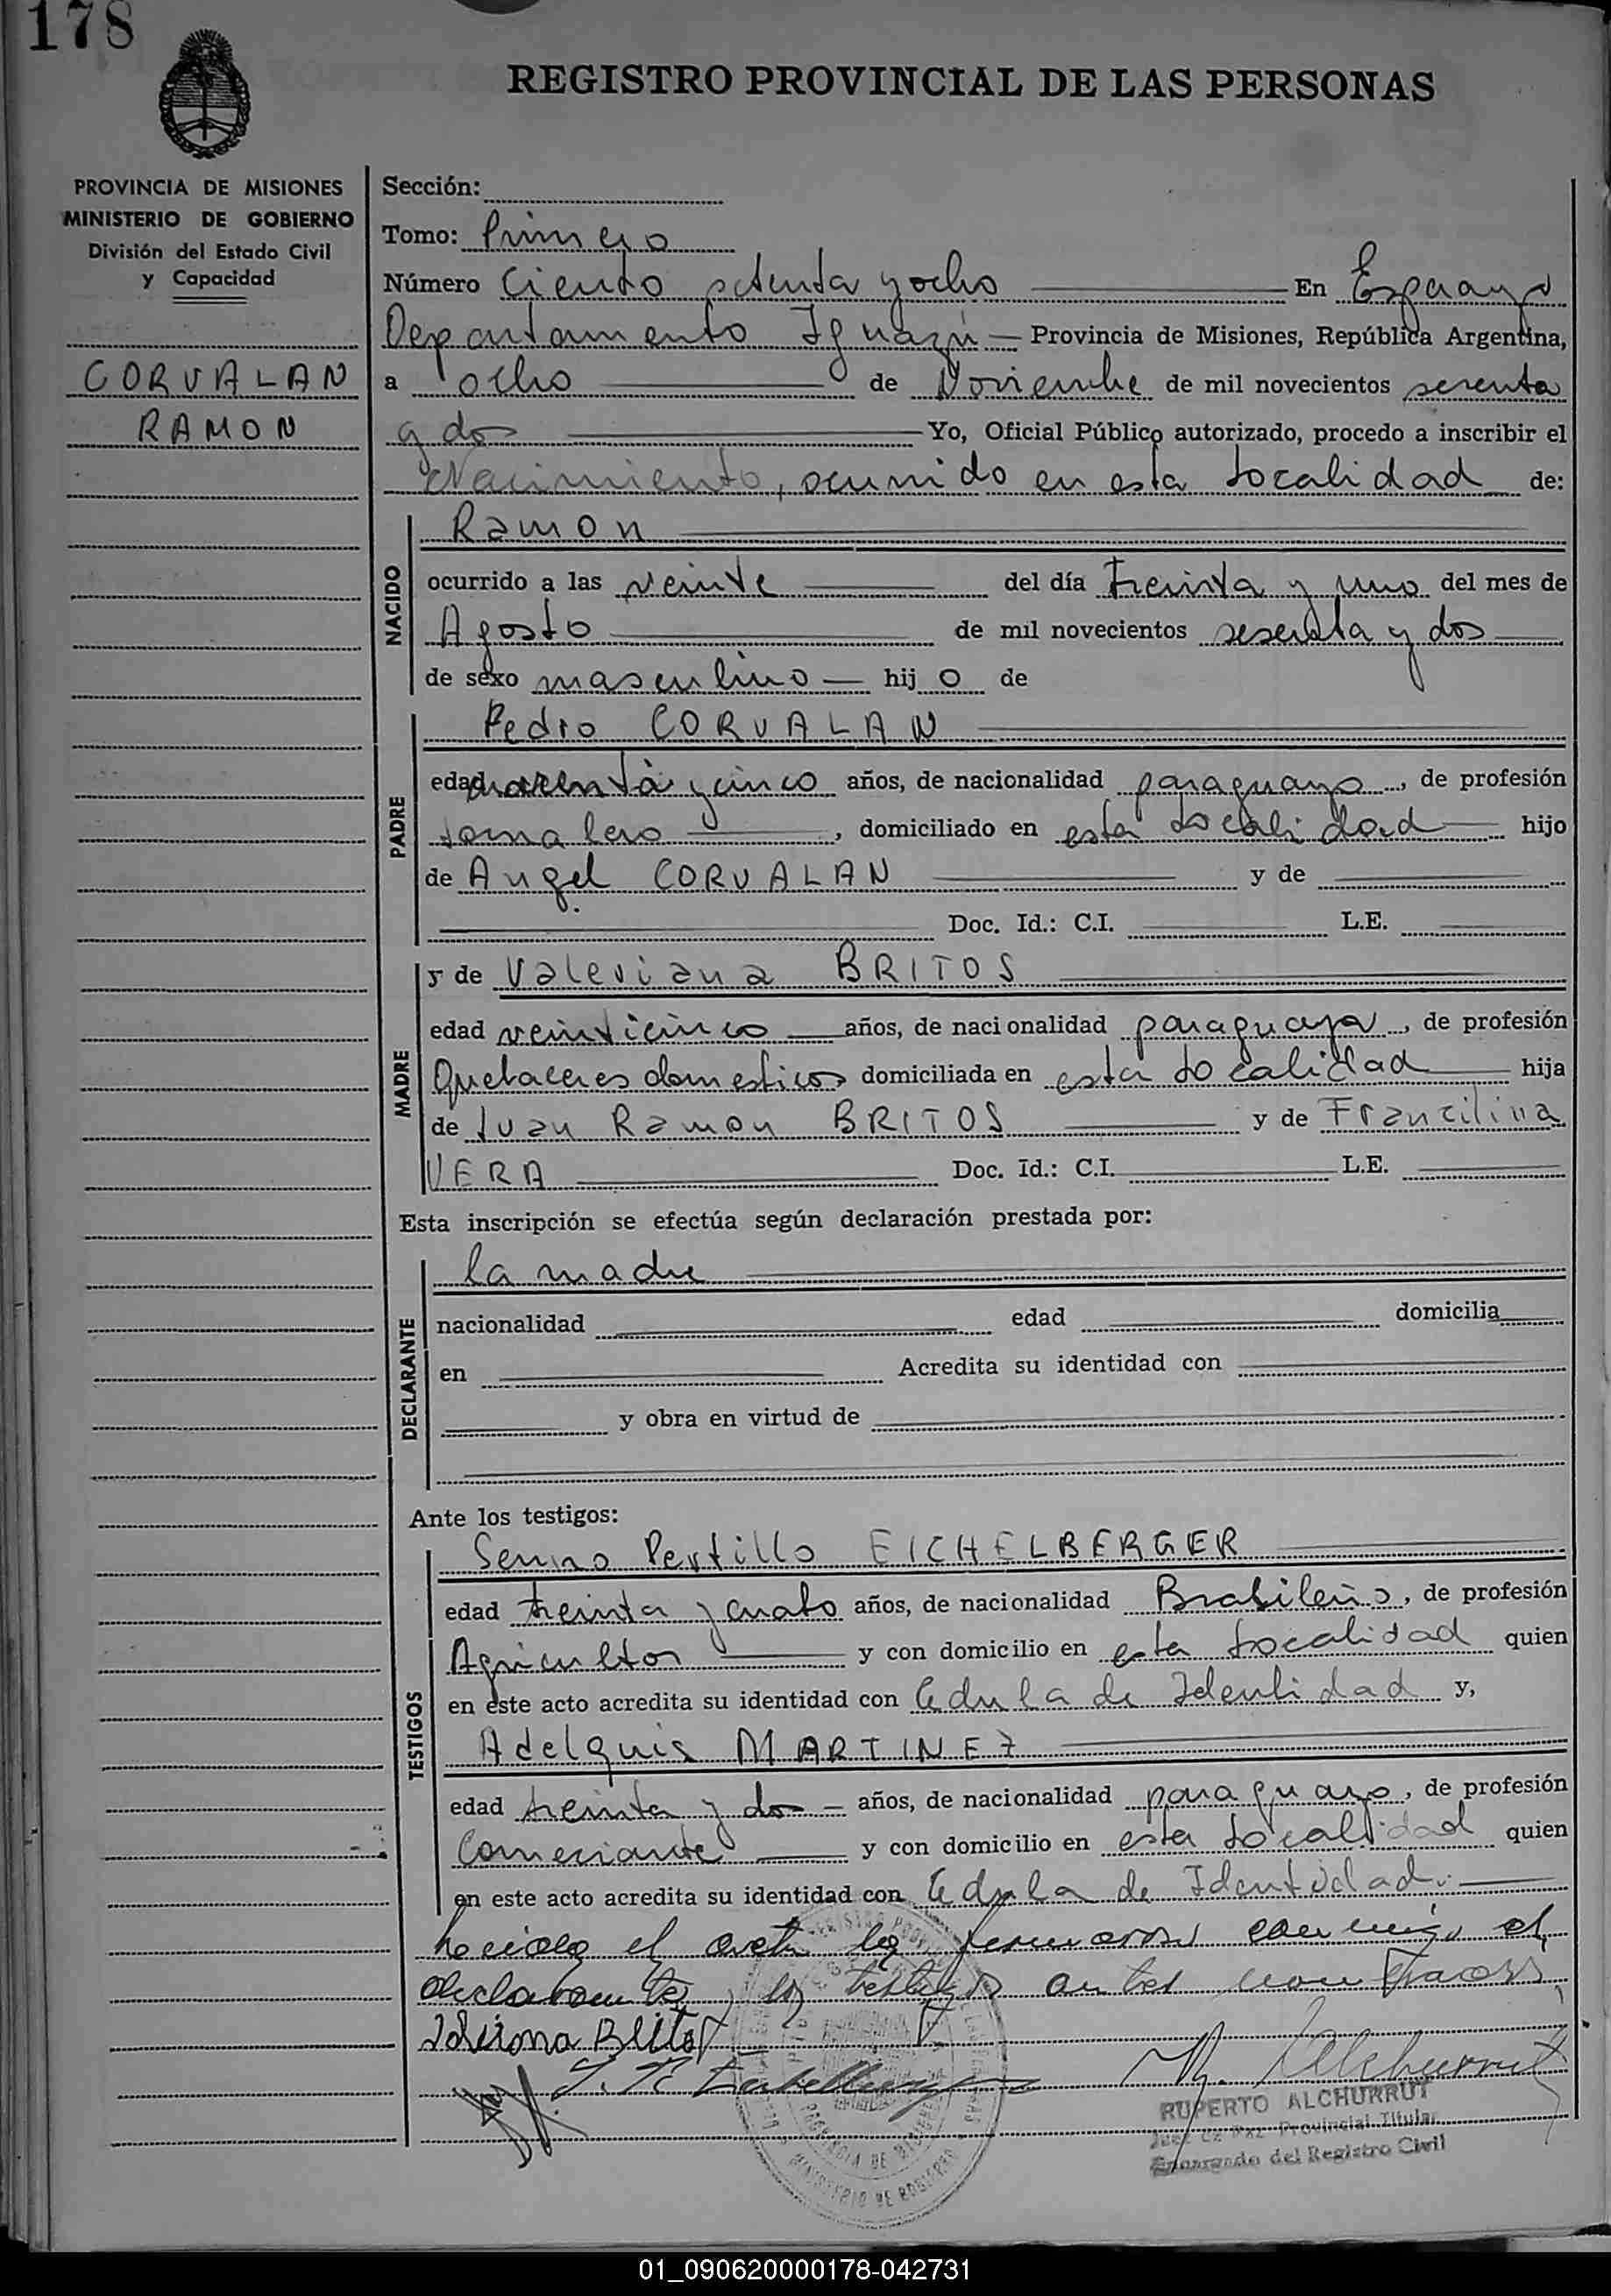 178
REGISTRO PROVINCIAL DE LAS PERSONAS
PROVINCIA DE MISIONES
MINISTERIO DE GOBIERNO
División del Estado Civil
y Capacidad
CORVALAN
RAMON
Sección:
Tomo: Primero
Número Ciento setenta y ocho En
Departamento Iguazú Provincia de Misiones, República Argentina,
a ocho de Noviembre de mil novecientos sesenta
y dos Yo, Oficial Público autorizado, procedo a inscribir el
Nacimiento, ocurrido en esta Localidad de:
NACIDO
Ramon
ocurrido a las veinte del día treinta y uno del mes de
Agosto de mil novecientos sesenta y dos
de sexo masculino hij o de
PADRE
Pedro CORVALAN
edad cuarenta y cinco años, de nacionalidad paraguayo, de profesión
Jornalero, domiciliado en esta Localidad hijo
de Angel CORVALAN y de
Doc. Id.: C.I. L.E.
MADRE
y de Valeriana BRITOS
edad veinticinco años, de nacionalidad paraguaya, de profesión
Quehaceres domesticos domiciliada en esta Localidad hija
de Juan Ramon BRITOS y de Francilina
VERA Doc. Id.: C.I. L.E.
Esta inscripción se efectúa según declaración prestada por:
DECLARANTE
la madre
nacionalidad edad domicilia
en Acredita su identidad con
y obra en virtud de
Ante los testigos:
TESTIGOS
EICHELBERGER
edad treinta y cuato años, de nacionalidad Brasileño, de profesión
Agricultor y con domicilio en esta Localidad quien
en este acto acredita su identidad con Cedula de Identidad y,
Adelquis MARTINEZ
edad treinta y dos años, de nacionalidad paraguayo, de profesión
Comerciante y con domicilio en esta Localidad quien
en este acto acredita su identidad con Cedula de Identidad.
el acta la conmigo el
declarante y los testigos antes
RUPERTO ALCHURRUT
Juez de Paz Provincial Titular
Encargado del Registro Civil
01_090620000178-042731